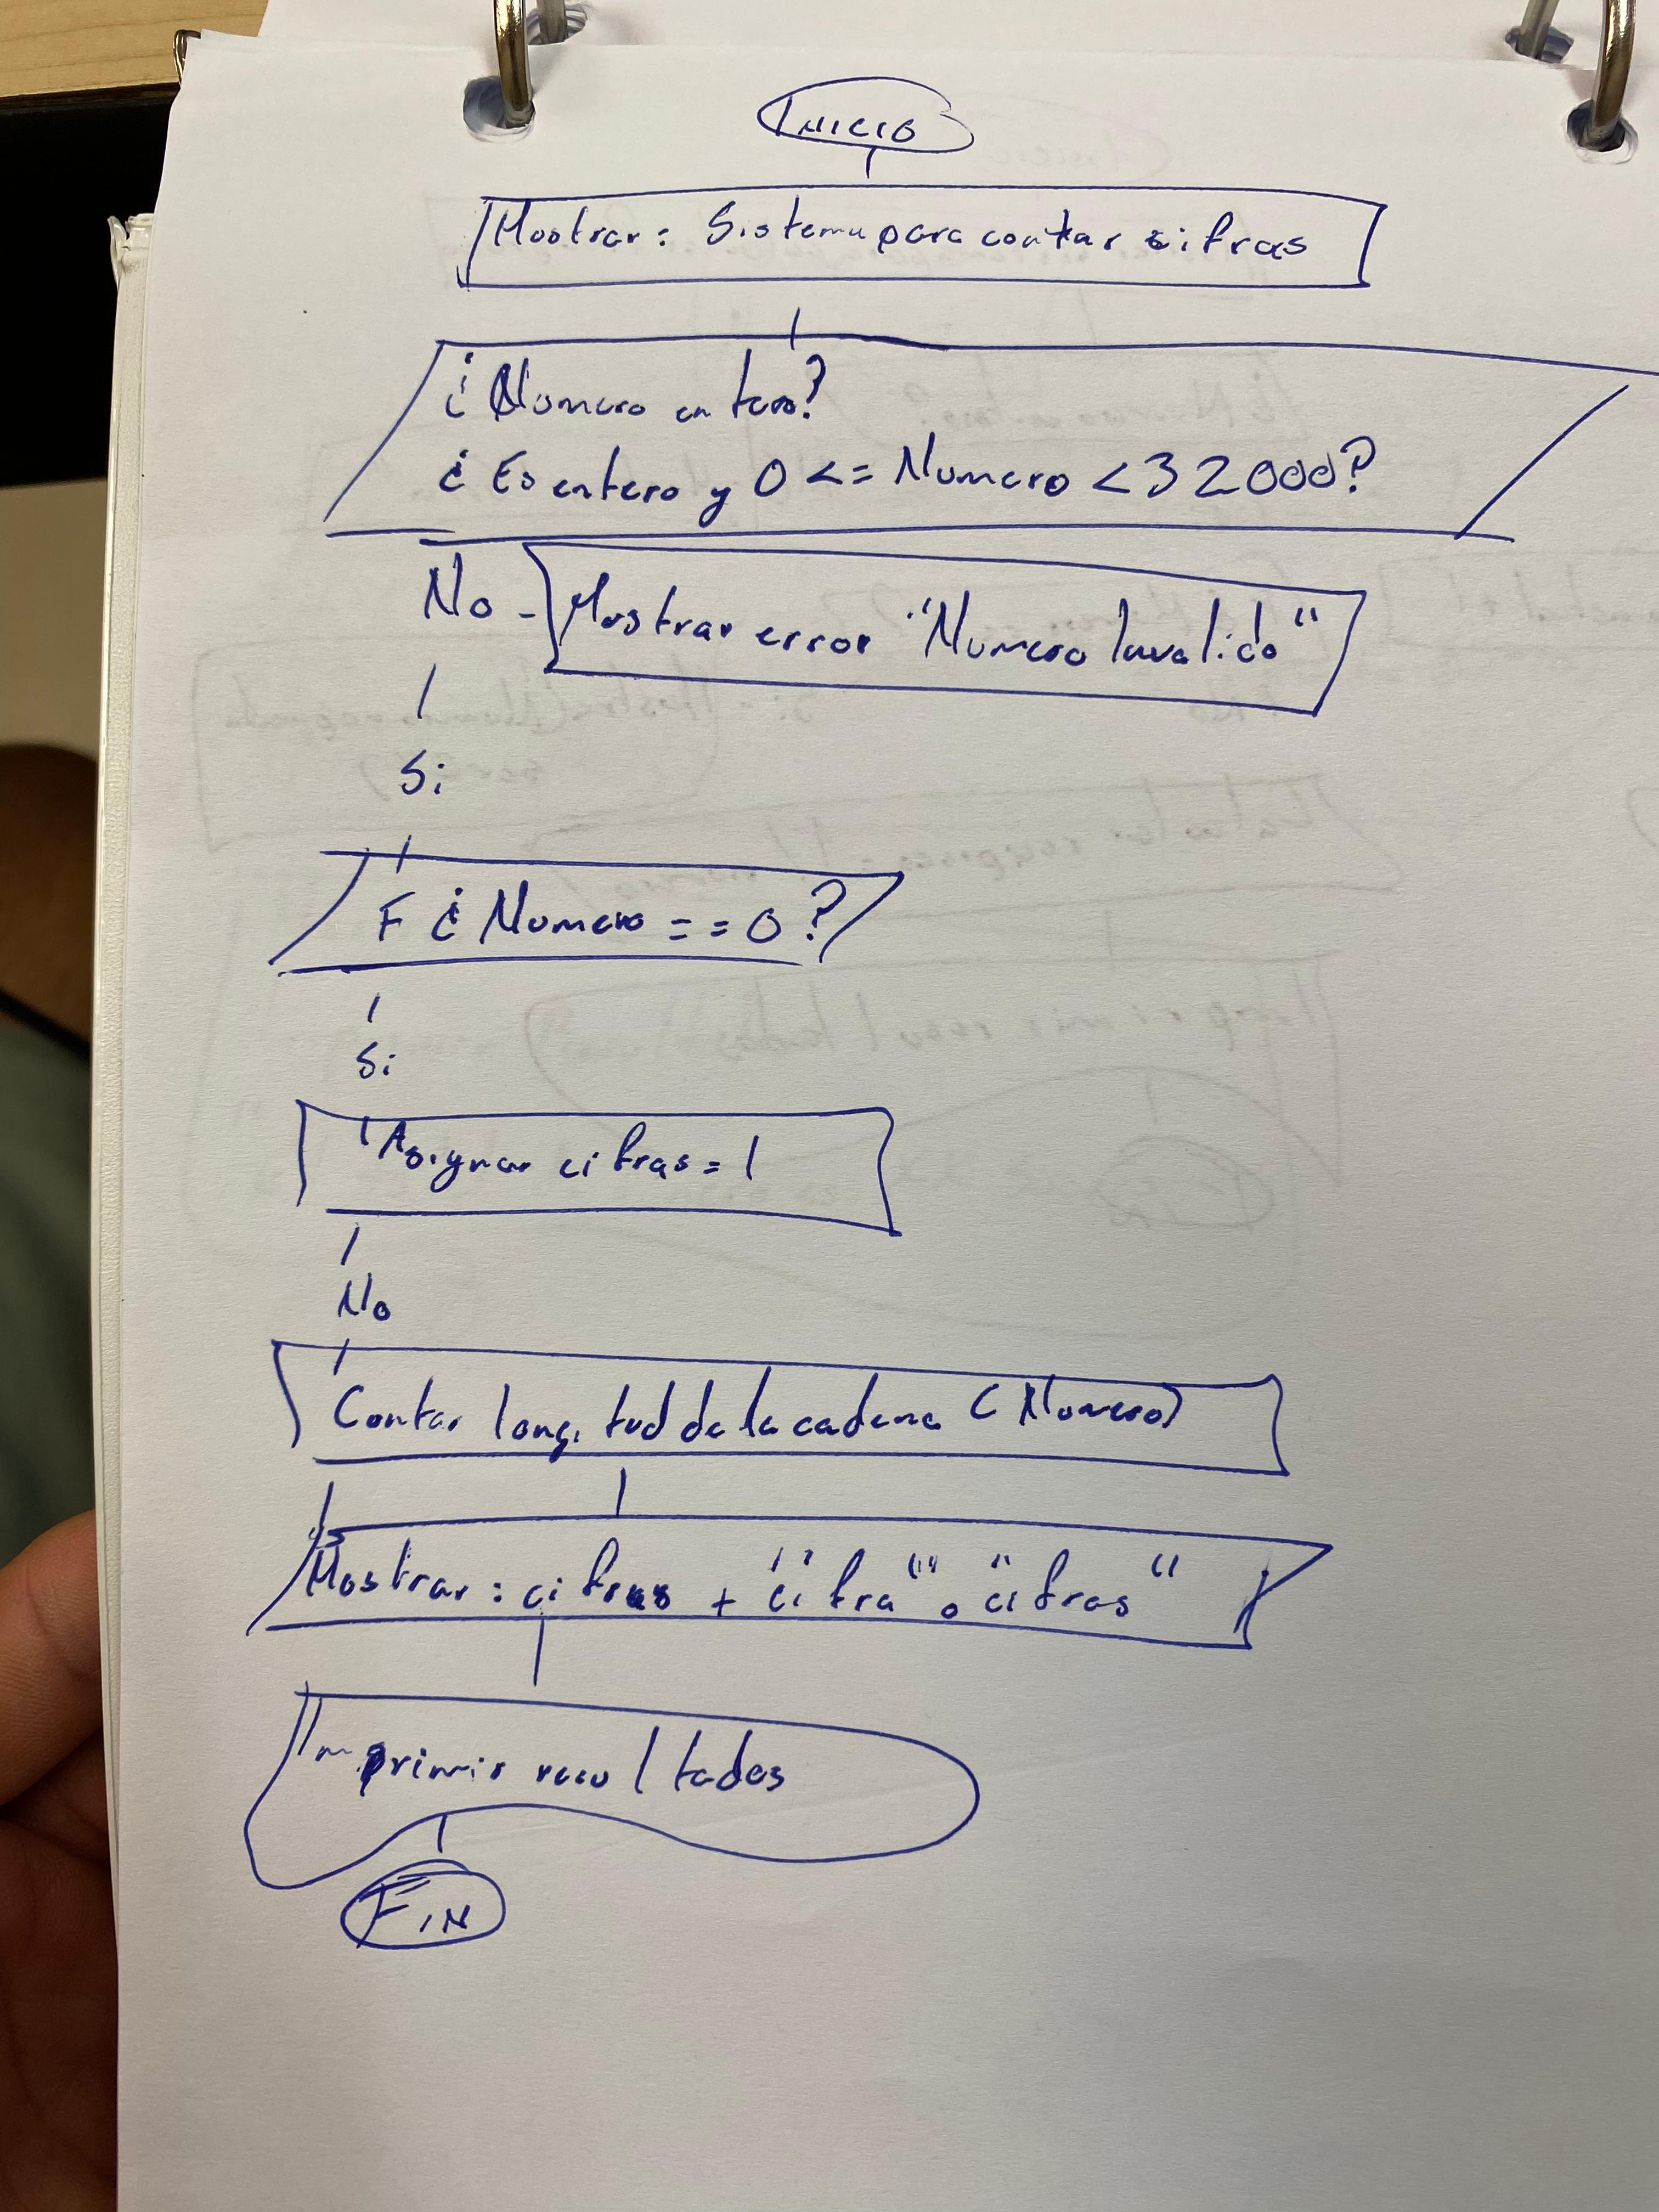 Inicio
Mostrar: Sistema para contar sifras
¿Numero entero?
¿Es entero y 0 <= Numero < 32000?
No - Mostrar error "Numero Invalido"
Si
F ¿Numero == 0?
Si
Asignar cifras = 1
No
Contar longitud de la cadena (Numero)
Mostrar: cifras + "cifra" o "cifras"
Imprimir resultados
Fin